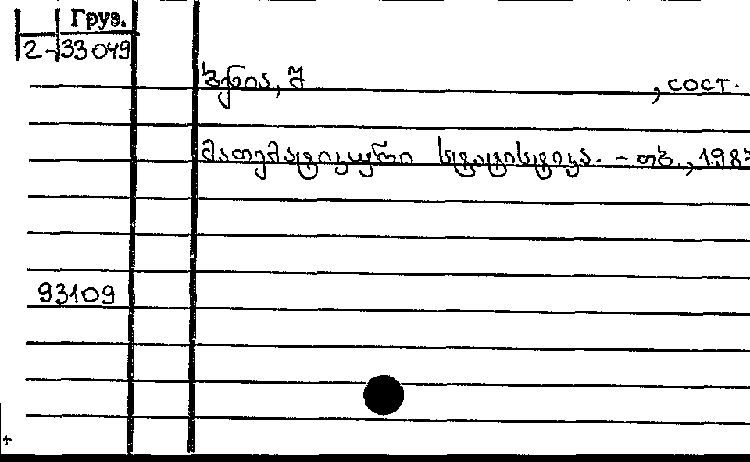 Груз.
2-33049
, сост.
მათემატიკური სტატისტიკა. - თბ., 198
93109